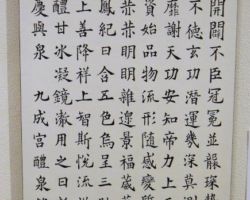 開闢不臣冠冕並襲琛贄
不德玄功潛運幾深莫測
靡謝天功安知帝力上
資始品物流形隨感變質
赫赫明明雜遝景福葳蕤
鳳紀日含五色烏呈三
上善降祥上智斯悅流謙
醴甘冰凝鏡澈用之日新
慶與泉 九成宮醴泉銘